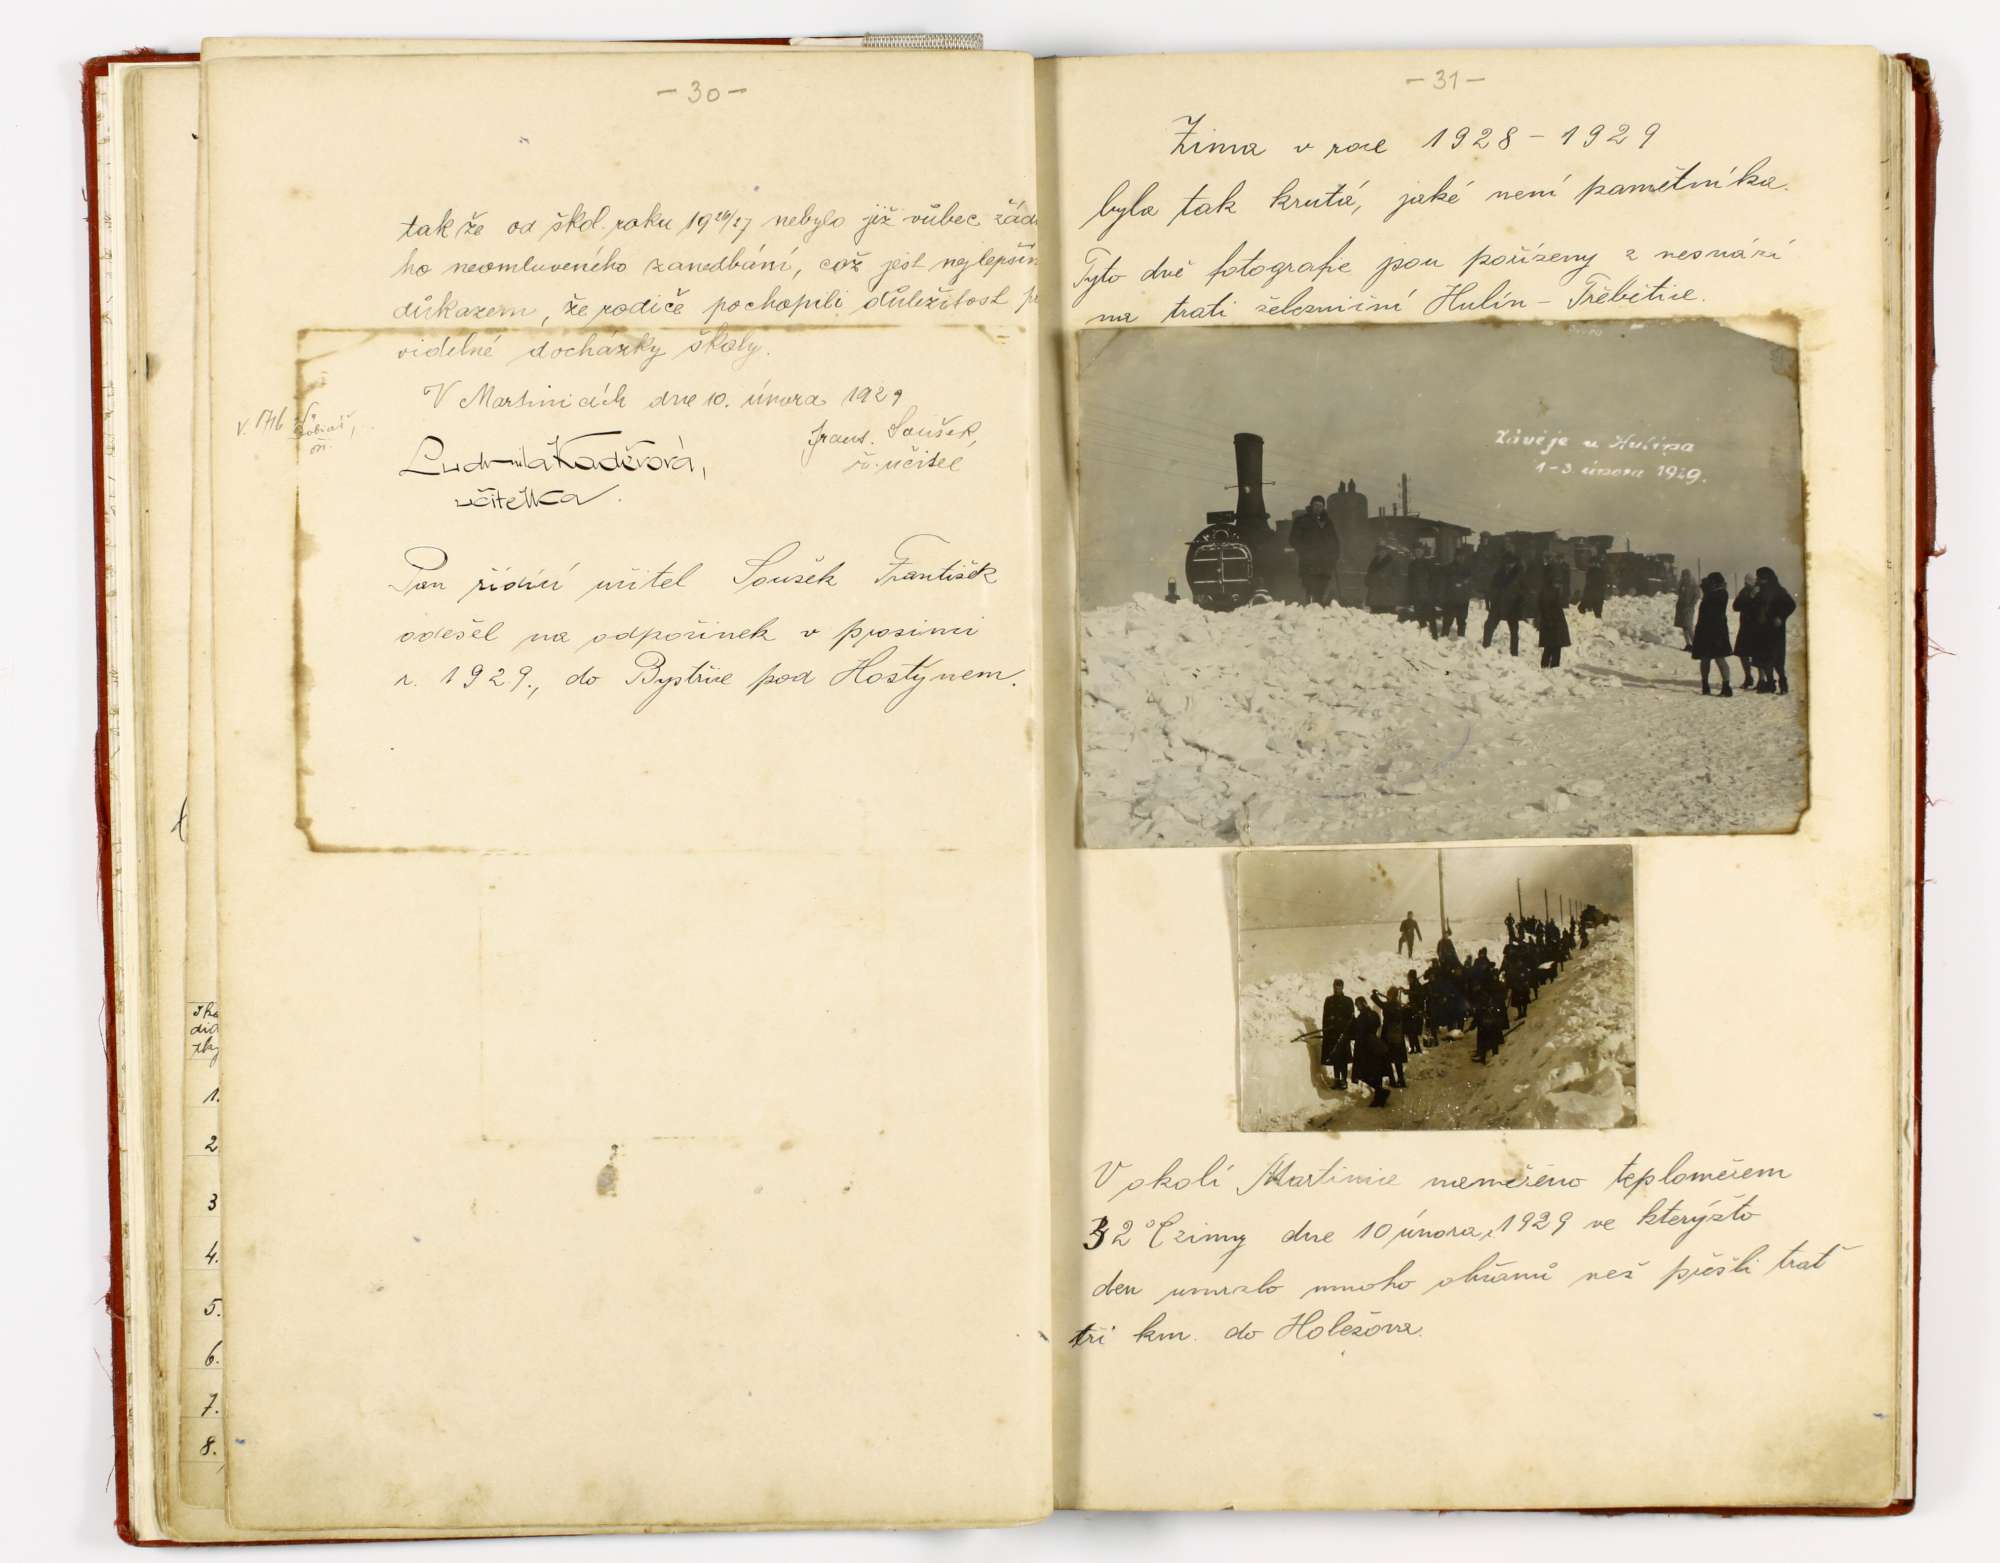 - 30 -
tak že od škol. roku 1926/27 nebylo již vůbec žád
ho neomluveného zanedbání, což jest nejlepším
důkazem, že rodiče pochopili důležitost p
videlné docházky školy.
V Martinicích dne 10. února 1929
V. 1716
Ludmila Kaděrová,
učitelka.
Frant. Soušek,
ř. učitel
Pan řídící učitel Soušek František
odešel na odpočinek v prosinci
r. 1929., do Bystřice pod Hostýnem.
1.
2
3
4.
5.
6.
7.
8.
- 31 -
Zima v roce 1928 - 1929
byla tak krutá, jaké není pamětníka.
Tyto dvě fotografie jsou pořízeny z nesnází
na trati železniční Hulín - Třebětice.
Závěje u Hulína
1-3. února 1929.
V okolí Martinic naměřeno teploměrem
32 °C zimy dne 10 února, 1929 ve kterýžto
den umrzlo mnoho občanů než přešli trať
tři km. do Holešova.